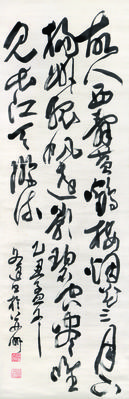 故人西辭黃鶴樓烟花三月下
揚州孤帆遠影碧空盡唯
見長江天際流
乙丑